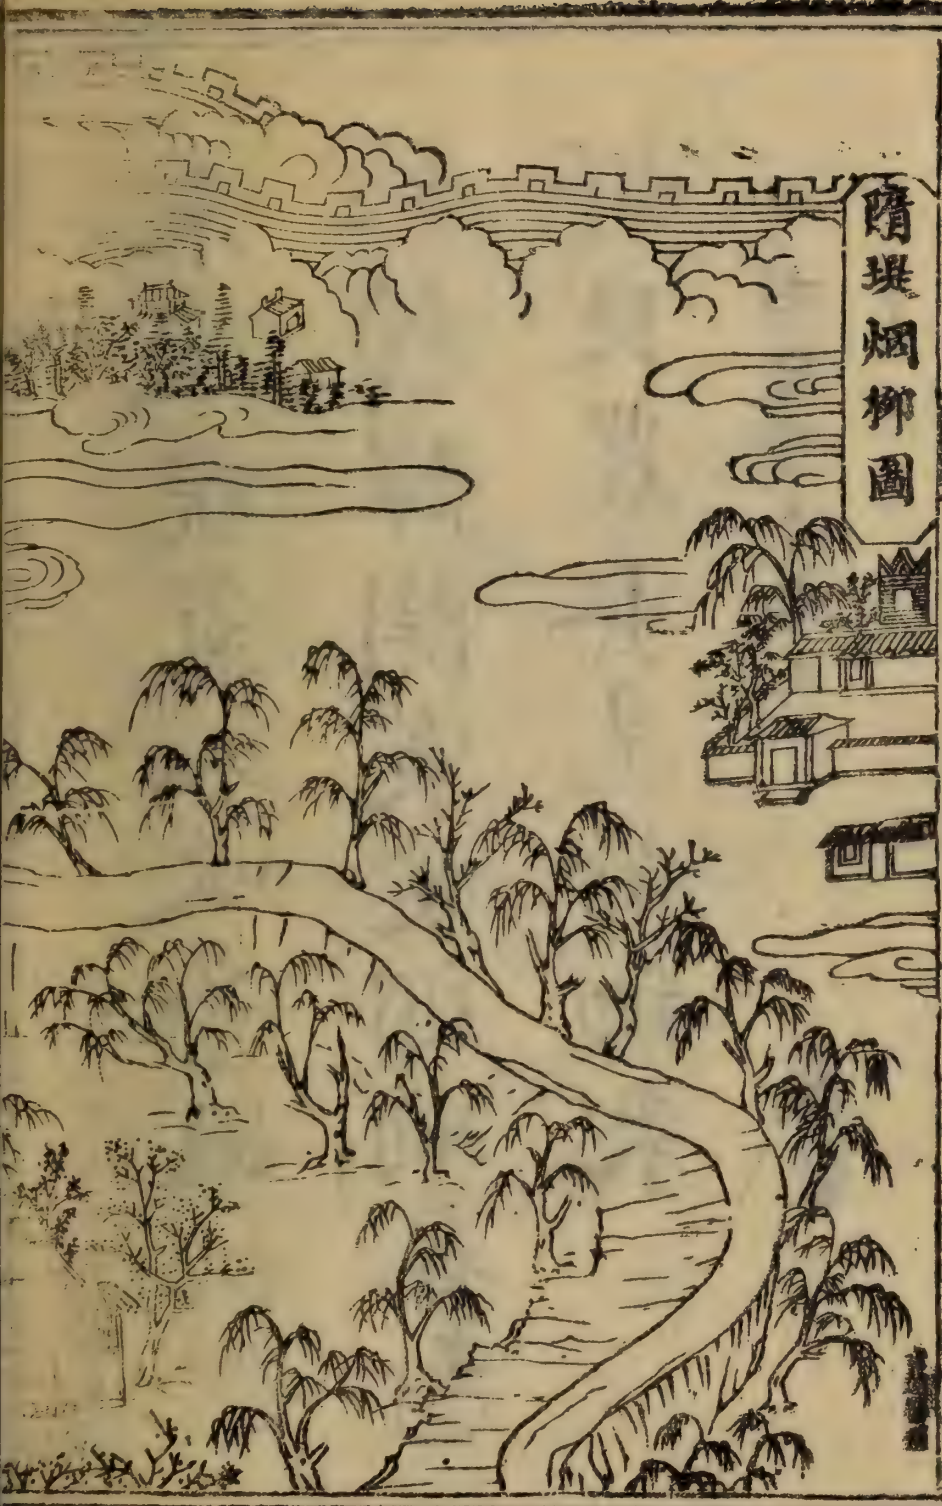 隋堤烟柳圖